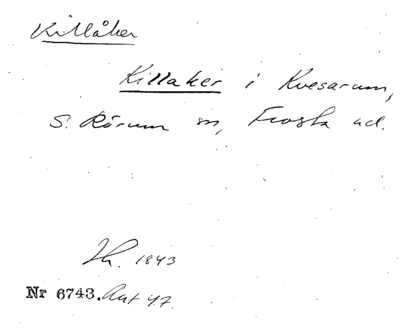 Killåker
Killaker i Kvesarum,
S. Rörum sn, Frosta hd.
Lh. 1843
Nr 6743. Ant 47.